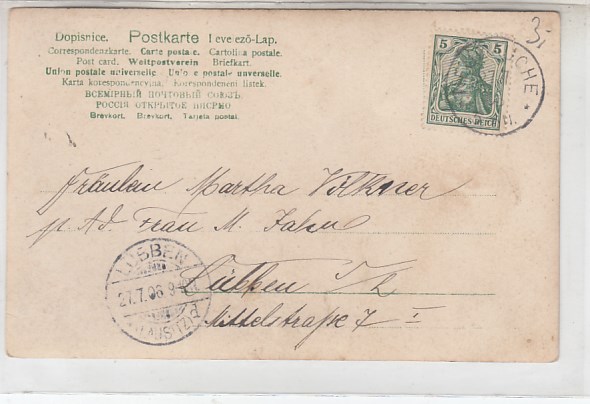 Dopisnice. Postkarte Levelező-Lap.
Correspondenzkarte. Carte postale. Cartolina postale.
Post card. Weltpostverein Briefkart.
Union postale universelle. Unio e postale unverselle.
Karta korespondencyina. Korespondencni listek.
ВСЕМІРНЫЙ ПОЧТОВЫЙ СОЮЗЪ
РОССІЯ ОТКРЫТОЕ ПИСЬМО
Brevkort. Brevkort. Tarjeta postal.
5 5
DEUTSCHES REICH
CHE
Fräulein Martha Volkmer
p. Ad. Frau M. Jahn
Lübben
Mittelstraße 7 I
LÜBBEN
27.7.06 9
(LAUSITZ)